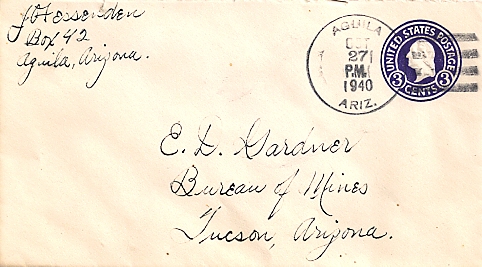 J O Fessenden
Box 42
Aguila, Arizona.
AGUILA
OCT
27
P.M.
1940
ARIZ.
UNITED STATES POSTAGE
3 CENTS 3
E. D. Gardner
Bureau of Mines
Tucson, Arizona.